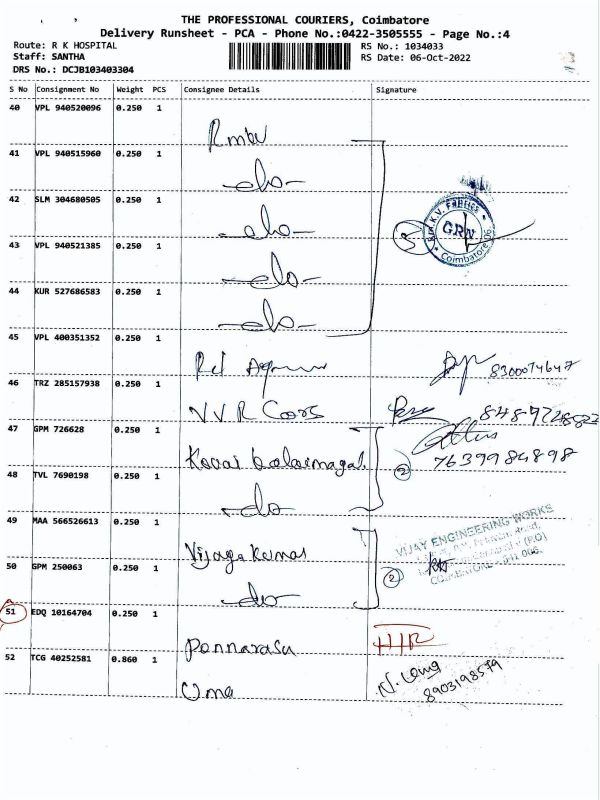 THE PROFESSIONAL COURIERS, Coimbatore
Delivery Runsheet - PCA - Phone No.:0422-3505555 - Page No.:4
Route: R K HOSPITAL RS No.: 1034033
Staff: SANTHA RS Date: 06-Oct-2022
DRS No.: DCJB103403304
S No Consignment No Weight PCS Consignee Details Signature
40 VPL 940520096 0.250 1
41 VPL 940515960 0.250 1 -do-
42 SLM 304680505 0.250 1 -do-
43 VPL 940521385 0.250 1 -do-
44 KUR 527686583 0.250 1 -do-
5
K.V. FABRICS
GRN
Coimbatore
45 VPL 400351352 0.250 1 8300074647
46 TRZ 285157938 0.250 1 V.V.R Cars
47 GPM 726628 0.250 1 Kovai Kalaimagal 7639984898
2
48 TVL 7690198 0.250 1 -do-
49 MAA 566526613 0.250 1 Vijaya Kumar
VIJAY ENGINEERING WORKS
50 GPM 250063 0.250 1 -do-
2
51 EDQ 10164704 0.250 1 Ponnarasu
52 TCG 40252581 0.860 1 Uma
8903198579